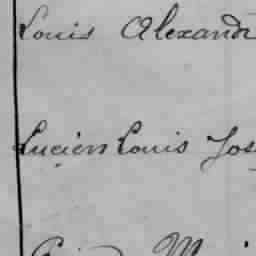 Louis Alexandr
Lucien Louis Jos